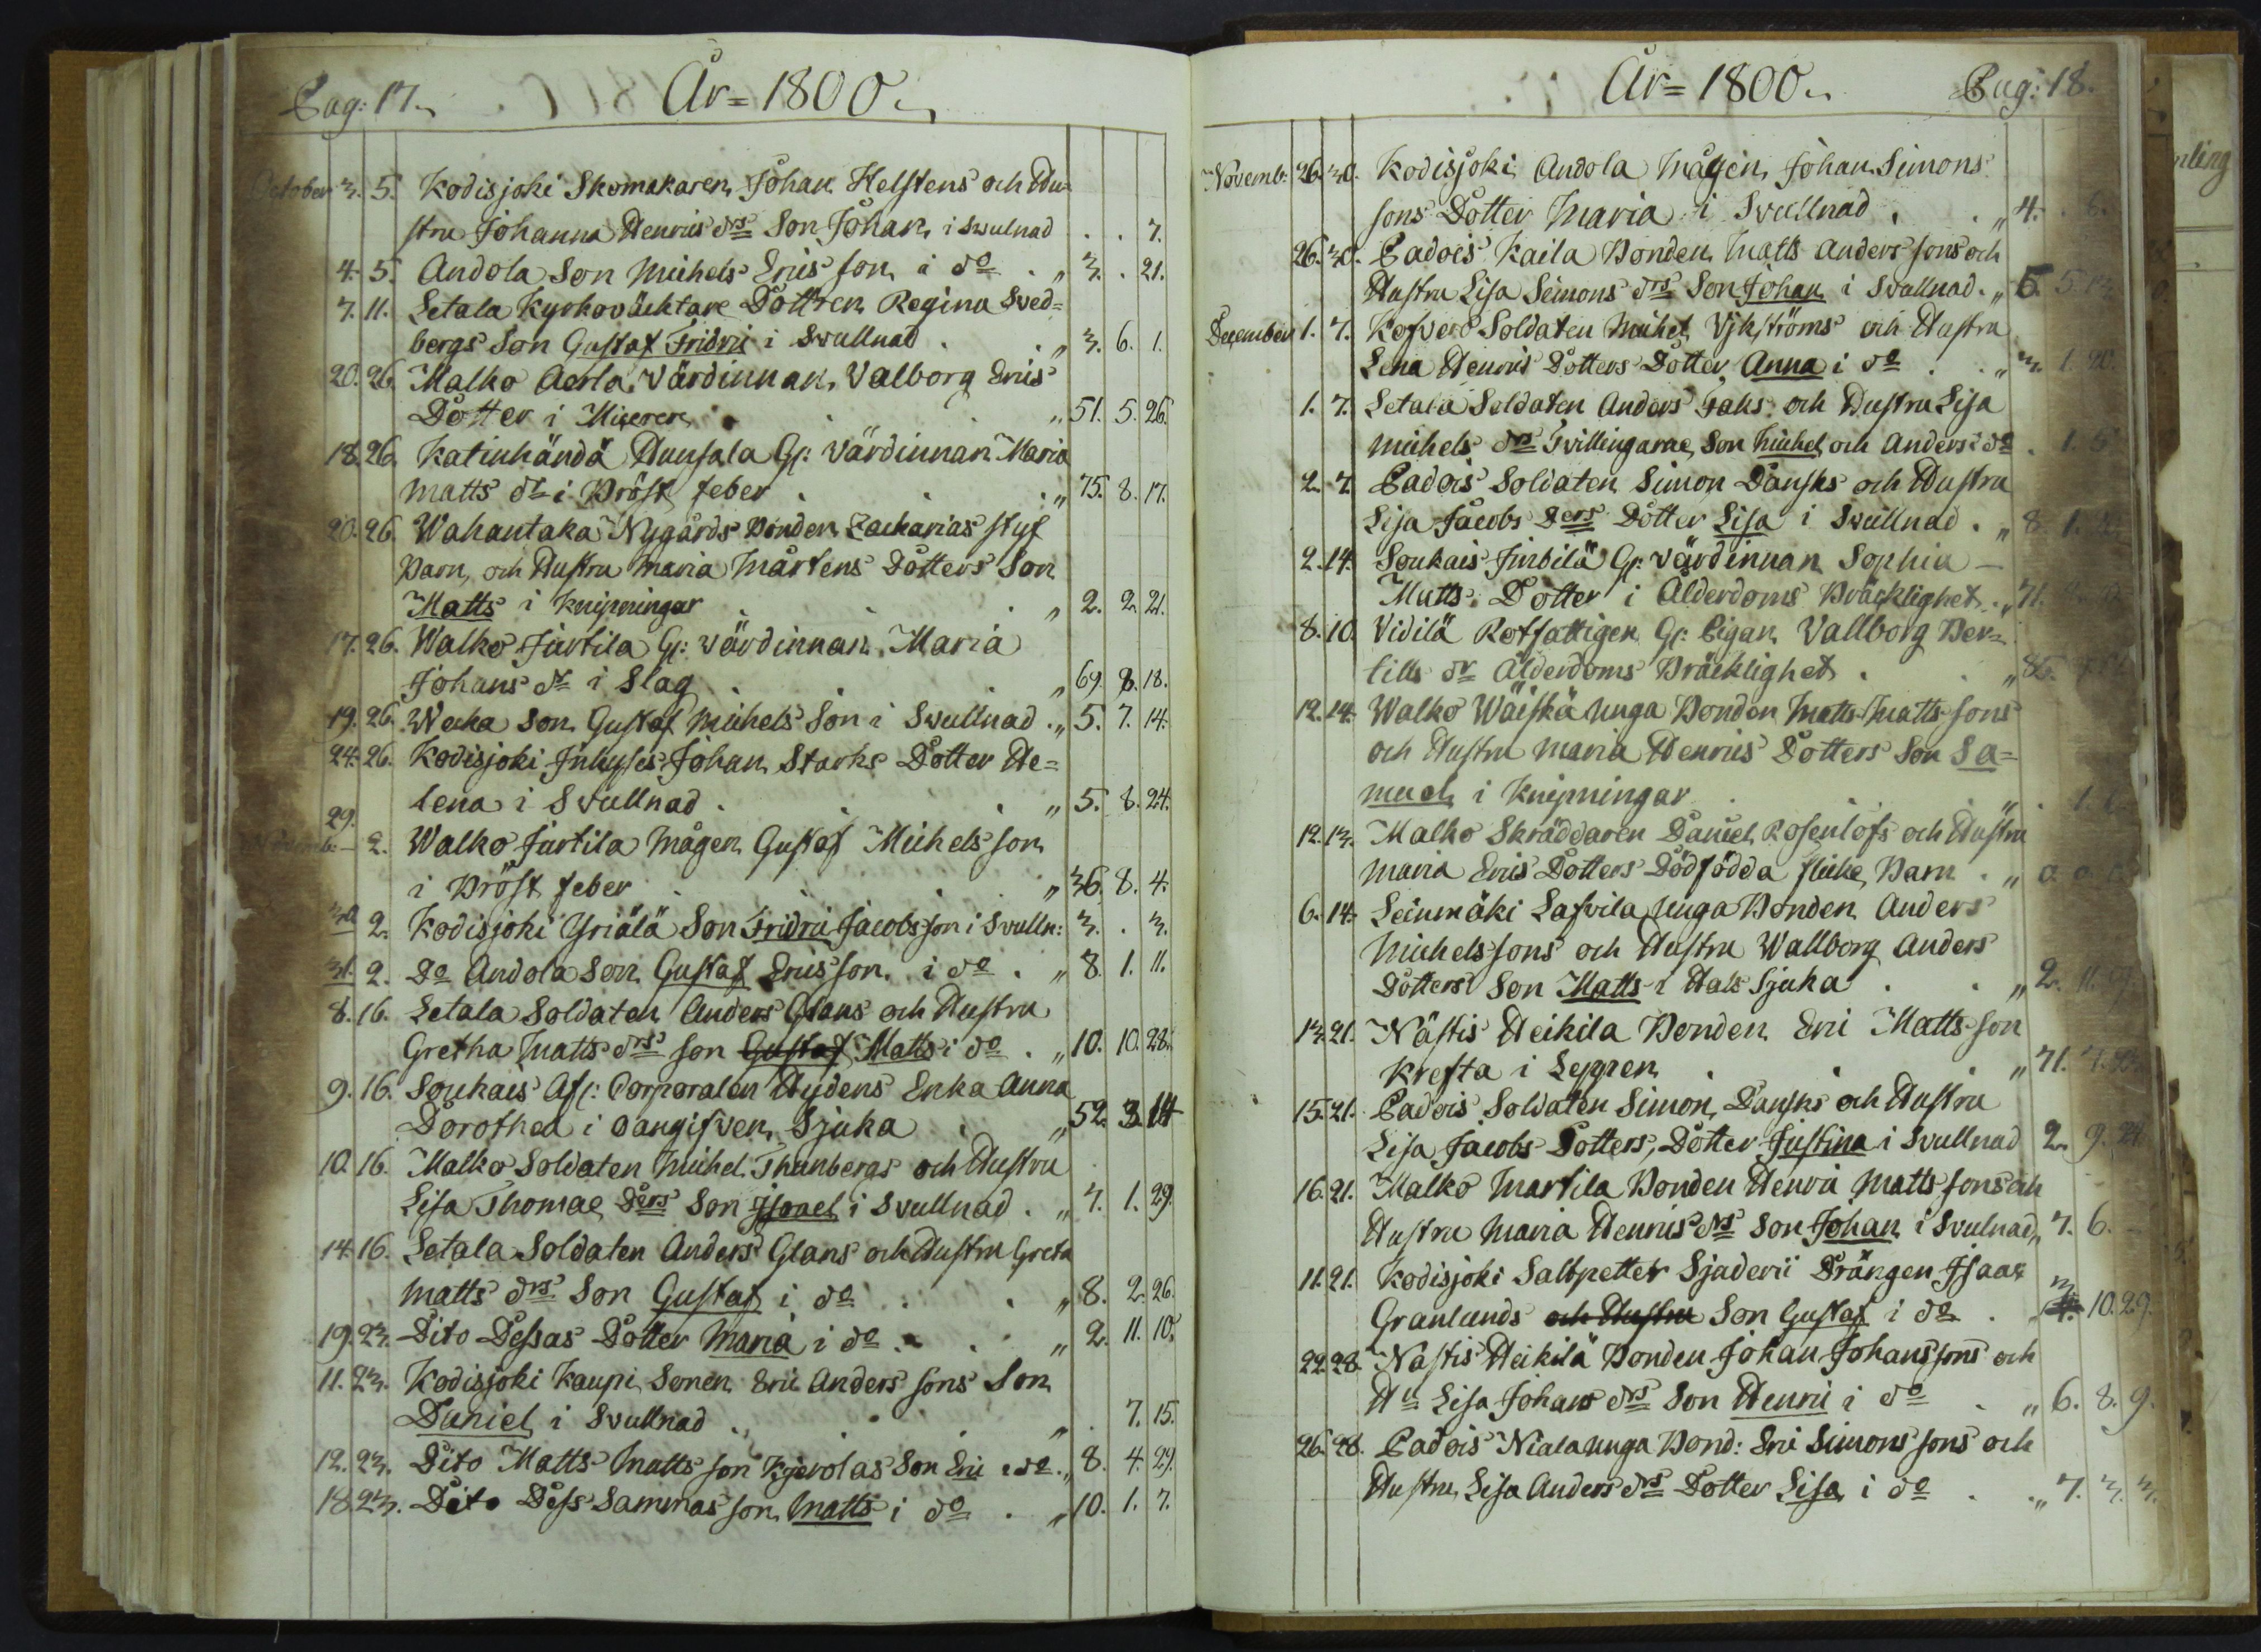 Pag: 17. År = 1800.
October 3. 5. Kodisjoki Skomakaren Johan Helstens och Hu-
stru Johanna Henrics drs Son Johan i Swulnad . . 7.
4. 5. Andola Son Michels Erics son i do . „ 3. . 21.
7. 11. Letala Kyrkoväcktare Dottren Regina Sved=
bergs Son Gustaf Fridric i Swullnad . „ 3. 6. 1.
20. 26. Malko Aerla Värdinnan Valborg Erics
Dotter i Miserere „ 51. 5. 26.
18. 26. Katinhändä Hunsala Gl: Värdinnan Maria
Matts dr i Bröst feber . „ 75. 8. 17.
20. 26. Wahantaka Nygårds Bonden Zacharias styf
Barn, och Hustru Maria Mårtens Dotters Son
Matts i Knipningar . „ 2. 2. 21.
17. 26. Walko Jurtila Gl: Värdinnan Maria
Johans dr i Slag . „ 69. 8. 18.
19. 26. Weha Son Gustaf Michels Son i Swullnad . „ 5. 7. 14.
24. 26. Kodisjoki Inhyses Johan Starks Dotter He=
lena i Swullnad . „ 5. 8. 24.
29.
Novemb: – 2. Walko Jurtila Mågen Gustaf Michels son
i Bröst feber . „ 36. 8. 4.
30. 2. Kodisjoki Yriälä Son Fridric Jacobs son i Svulln: 3. . 3.
31. 2. Do Andola Son Gustaf Ericsson i do . „ 8. 1. 11.
8. 16. Letala Soldaten Anders Glans och Hustru
Gretha Matts drs son Gustaf Matts i do . „ 10. 10. 28.
9. 16. Soukais Afl: Corporalen Hydens Enka Anna
Dorothea i oangifven Sjuka . „ 52. 3. 14
10. 16. Malko Soldaten Michel Thunbergs och Hustru
Lisa Thomae Ders Son Israel i Svullnad . „ 7. 1. 29.
14. 16. Letala Soldaten Anders Glans och Hustru Greta
Matts drs Son Gustaf i do . „ 8. 2. 26.
19. 23. Dito Dessas Dotter Maria i do . „ 2. 11. 10.
11. 23. Kodisjoki Kaupi Sonen Eric Anders sons Son
Daniel i Svullnad . „ . 7. 15.
12. 23. Dito Matts Matts son Kjerolas Son Eric i do . „ 8. 4. 29.
18. 23. Dito Dess Sammas son Matts i do . „ 10. 1. 7.
År = 1800. Pag: 18.
Novemb: 26. 30. Kodisjoki Andola Mågen Johan Simons
sons Dotter Maria i Svullnad . „ 4. . 6.
26. 30. Cadois Kaila Bonden Matts Anders sons och
Hustru Lisa Simons drs Son Johan i Svullnad . „ 5. 5.
December 1. 7. Kofvero Soldaten Michel Vikströms och Hustru
Lena Henrics Dotters Dotter Anna i do . „ 3. 1. 20.
1. 7. Letala Soldaten Anders Gaks och Hustru Lisa
Michels drs Tvillingarne, Son Michel och Anders i do . 1. 5
2. 7. Cadois Soldaten Simon Dansks och Hustru
Lisa Jacobs Ders Dotter Lisa i Swullnad . „ 8. 1.
2. 14. Soukais Jinbilä Gl: Värdinnan Sophia –
Matts Dotter i Ålderdoms Bräcklighet . „ 71.
8. 10. Vidilä Rotfattigen Gl: Pigan Vallborg Ber=
tills dr Ålderdoms Bräcklighet . „ 85.
12. 14. Walko Wäiskä unga Bonden Matts Matts sons
och Hustru Maria Henrics Dotters Son Sa=
muel i Knipningar . „ . 1.
12. 13. Malko Skräddaren Daniel Rosenlöfs och Hustru
Maria Erics Dotters Dödfödda flicke Barn . „ 0. 0. 0
6. 14. Leinmäki Lasvila Unga Bonden Anders
Michelssons och Hustru Wallborg Anders
Dotters Son Matts i Hals Sjuka . „ 2. 11.
13. 21. Nästis Heikila Bonden Eric Matts son
Krefta i Leppen . „ 71. 7.
15. 21. Cadois Soldaten Simon Dansks och Hustru
Lisa Jacobs Dotters, Dotter Justina i Svullnad 2. 9. 24.
16. 21. Malko Martila Bonden Henric Matts sons och
Hustru Maria Henrics drs Son Johan i Svulnad „ 7. 6. –
11. 21. Kodisjoki Saltpetter Sjuderii Drängen Isaac
Granlunds och Hustru Son Gustaf i do . „ 3. 10. 29.
22. 28. Nästis Heikilä Bonden Johan Johanssons och
Hu Lisa Johans drs Son Henric i do . „ 6. 8. 9.
26. 28. Cadois Niala unga Bond: Eric Simons sons och
Hustru Lisa Anders drs Dotter Lisa i do . „ 7. 3. 3.